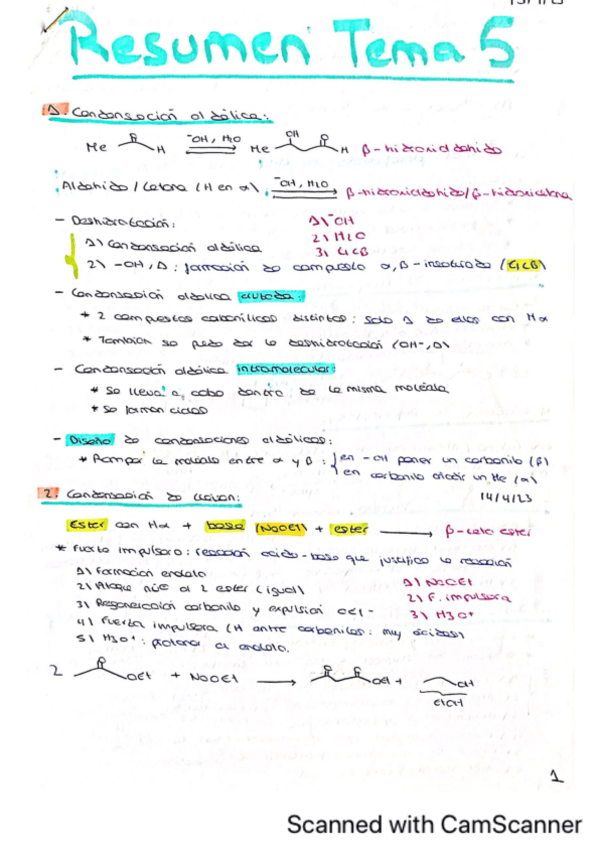 Resumen Tema 5
1. Condensación aldólica:
Me H -OH, H2O Me OH O H β-hidroxialdehido
Aldehido / Cetona (H en α) -OH, H2O β-hidroxialdehido/β-hidroxicetona
- Deshidratación:
1) Condensación aldólica
2) -OH, Δ: formación de compuesto α,β-insaturado (E1CB)
1) -OH
2) H2O
3) E1CB
- Condensación aldólica cruzada:
* 2 compuestos carbonílicos distintos: solo 1 de ellos con Hα
* También se puede dar la deshidratación (OH-, Δ)
- Condensación aldólica intramolecular:
* Se lleva a cabo dentro de la misma molécula
* Se forman ciclos
- Diseño de condensaciones aldólicas:
* Romper la molécula entre α y β: en -OH poner un carbonilo (β)
en carbonilo añadir un Me (α)
14/4/23
2. Condensación de Claisen:
Ester con Hα + base (NaOEt) + ester → β-ceto ester
* Fuerza impulsora: reacción ácido-base que justifica la reacción
1) Formación enolato
2) Ataque nuc al 2 ester (igual)
3) Regeneración carbonilo y expulsión OEt-
4) Fuerza impulsora (H entre carbonilos: muy ácidos)
5) H3O+: protonar el enolato.
1) NaOEt
2) F. impulsora
3) H3O+
2 O OEt + NaOEt → O O OEt + OH
EtOH
1
Scanned with CamScanner